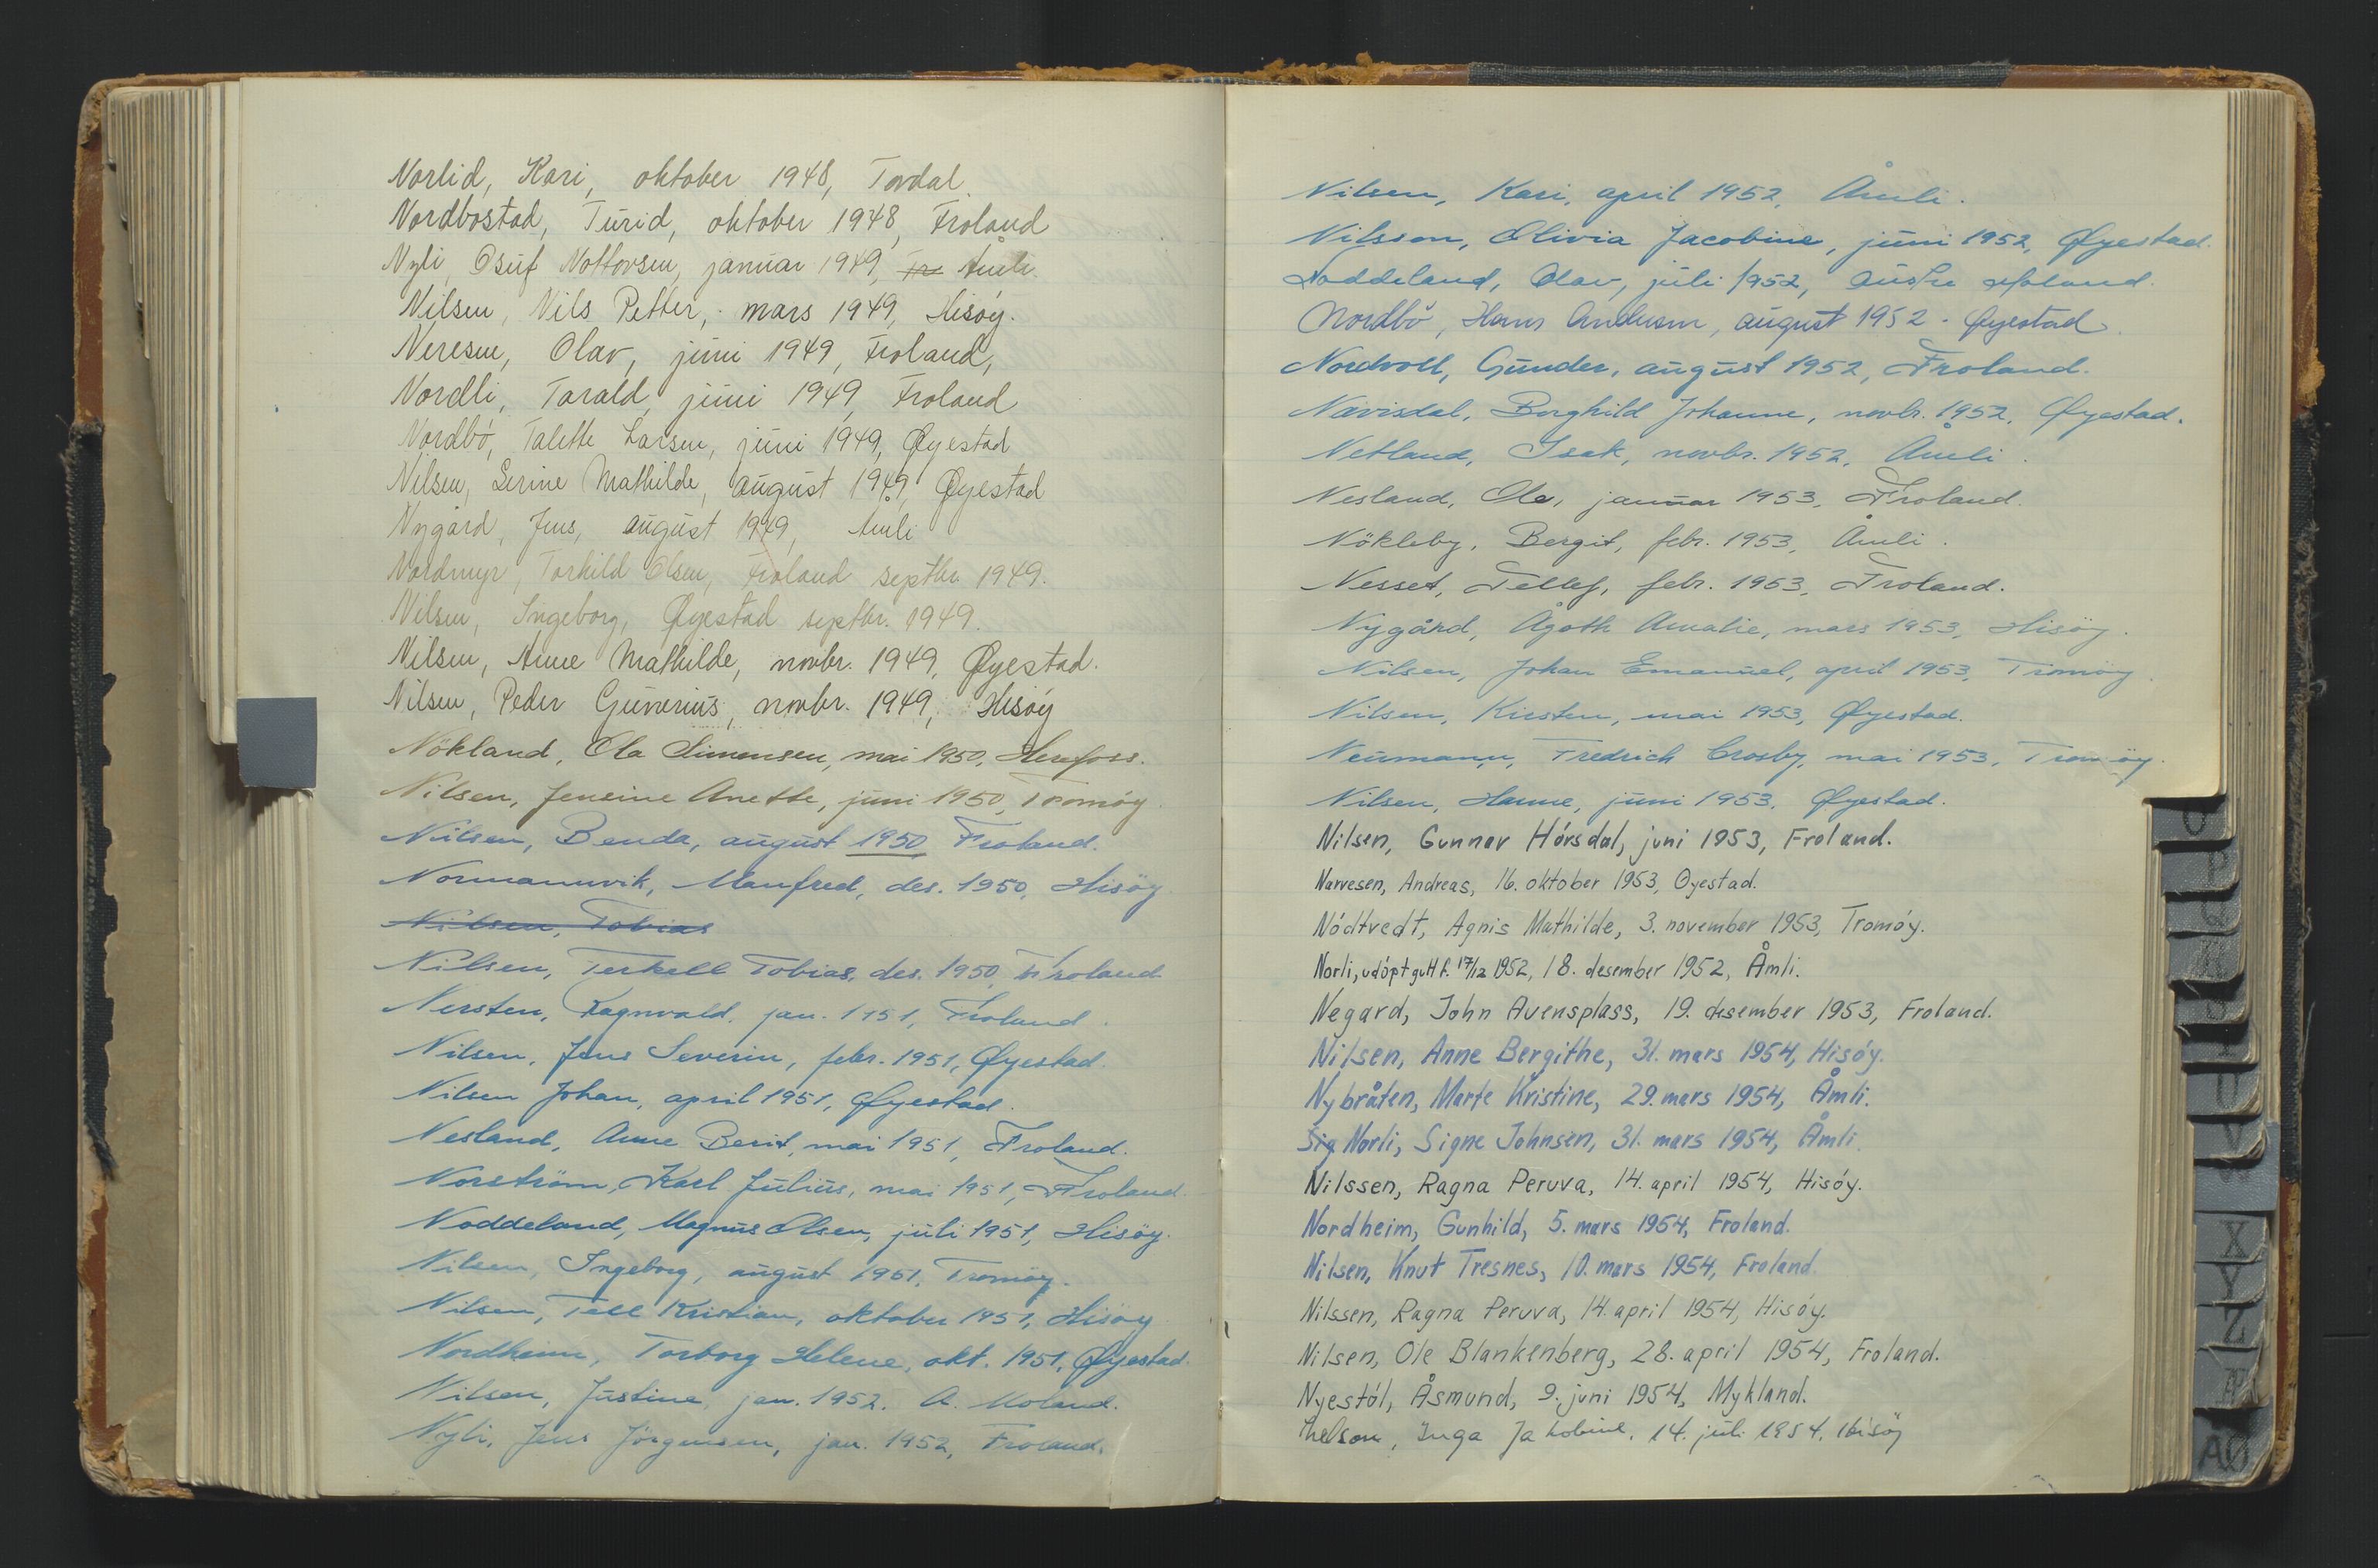 Norlid, Kari, oktober 1948, Tovdal.
Nordbostad, Turid, oktober 1948, Froland
Nyli, Osuf Nottovsen, januar 1949, Åmli.
Nilsen, Nils Petter, mars 1949, Hisøy.
Neresen, Olav, juni 1949, Froland,
Nordli, Tarald, juni 1949, Froland
Nordbó, Talette Larsen, juni 1949, Øyestad
Nilsen, Serine Mathilde, august 1949, Øyestad
Nygård, Jens, august 1949, Åmli
Nordmyr, Torhild Olsen, Froland septbr. 1949.
Nilsen, Ingeborg, Øyestad septbr. 1949.
Nilsen, Anne Mathilde, novbr. 1949, Øyestad.
Nilsen, Peder Gunerius, novbr. 1949, Hisóy
Nökland, Ola Simonsen, mai 1950, Herefoss.
Nilsen, Jensine Anette, juni 1950, Tromóy.
Nilsen, Benda, august 1950 Froland.
Normannvik, Manfred, des. 1950, Hisöy
Nilsen, Tobias
Nilsen, Terkell Tobias, des. 1950, Froland.
Nersten, Ragnvald, jan. 1951, Froland.
Nilsen, Jens Severin, febr. 1951, Øyestad.
Nilsen Johan, april 1951, Øyestad.
Nesland, Anne Berit, mai 1951, Froland.
Norström, Karl Julius, mai 1951, Froland.
Noddeland, Magnus Olsen, juli 1951, Hisöy.
Nilsen, Ingeborg, august 1951, Tromöy.
Nilsen, Tell Kristian, oktober 1951, Hisöy
Nordheim, Torborg Helene, okt. 1951, Øyestad.
Nilsen, Justine, jan. 1952. A. Moland.
Nyli, Jens Jörgensen, jan. 1952, Froland.
Nilsen, Kari, april 1952, Åmli.
Nilsson, Olivia Jacobine, juni 1952, Øyestad.
Noddeland, Olav, juli 1952, Austre Moland.
Nordbö, Hans Andersen, august 1952. Øyestad.
Nordvoll, Gunder, august 1952, Froland.
Nævisdal, Borghild Johanne, novbr. 1952, Øyestad.
Netland, Isak, novbr. 1952, Åmli.
Nesland, Ole, januar 1953, Froland.
Nökleby, Bergit, febr. 1953, Åmli.
Nesset, Tellef, febr. 1953, Froland.
Nygård, Ågoth Amalie, mars 1953, Hisöy.
Nilsen, Johan Emanuel, april 1953, Tromöy.
Nilsen, Kirsten, mai 1953, Øyestad.
Neumann, Fredrich Crosby, mai 1953, Tromöy.
Nilsen, Hanne, juni 1953, Øyestad.
Nilsen, Gunnar Hórsdal, juni 1953, Froland.
Narvesen, Andreas, 16. oktober 1953, Oyestad.
Nódtvedt, Agnis Mathilde, 3. november 1953, Tromóy.
Norli, udópt gutt f. 17/12 1952, 18. desember 1952, Åmli.
Negard, John Avensplass, 19. desember 1953, Froland.
Nilsen, Anne Bergithe, 31. mars 1954, Hisóy.
Nybråten, Marte Kristine, 29. mars 1954, Åmli.
Sig Norli, Signe Johnsen, 31. mars 1954, Åmli.
Nilssen, Ragna Peruva, 14. april 1954, Hisóy.
Nordheim, Gunhild, 5. mars 1954, Froland.
Nilsen, Knut Tresnes, 10. mars 1954, Froland.
Nilssen, Ragna Peruva, 14. april 1954, Hisóy.
Nilsen, Ole Blankenberg, 28. april 1954, Froland.
Nyestól, Åsmund, 9. juni 1954, Mykland.
Nelson, Inga Jakobine, 14. juli 1954, Hisöy
O
P
Q
R
S
T
U
V
W
X
Y
Z
Æ
AØ